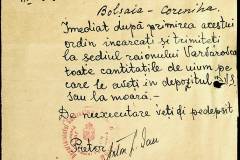 Bolșaia - Coreniha.
Imediat după primirea acestui
ordin incarcați și trimiteți
la sediul raionului Varvarovca
toate cantitățile de uium pe
care le aveți in depozitul
sau la moară. -
De neexecutare veți fi pedepsit
Pretor